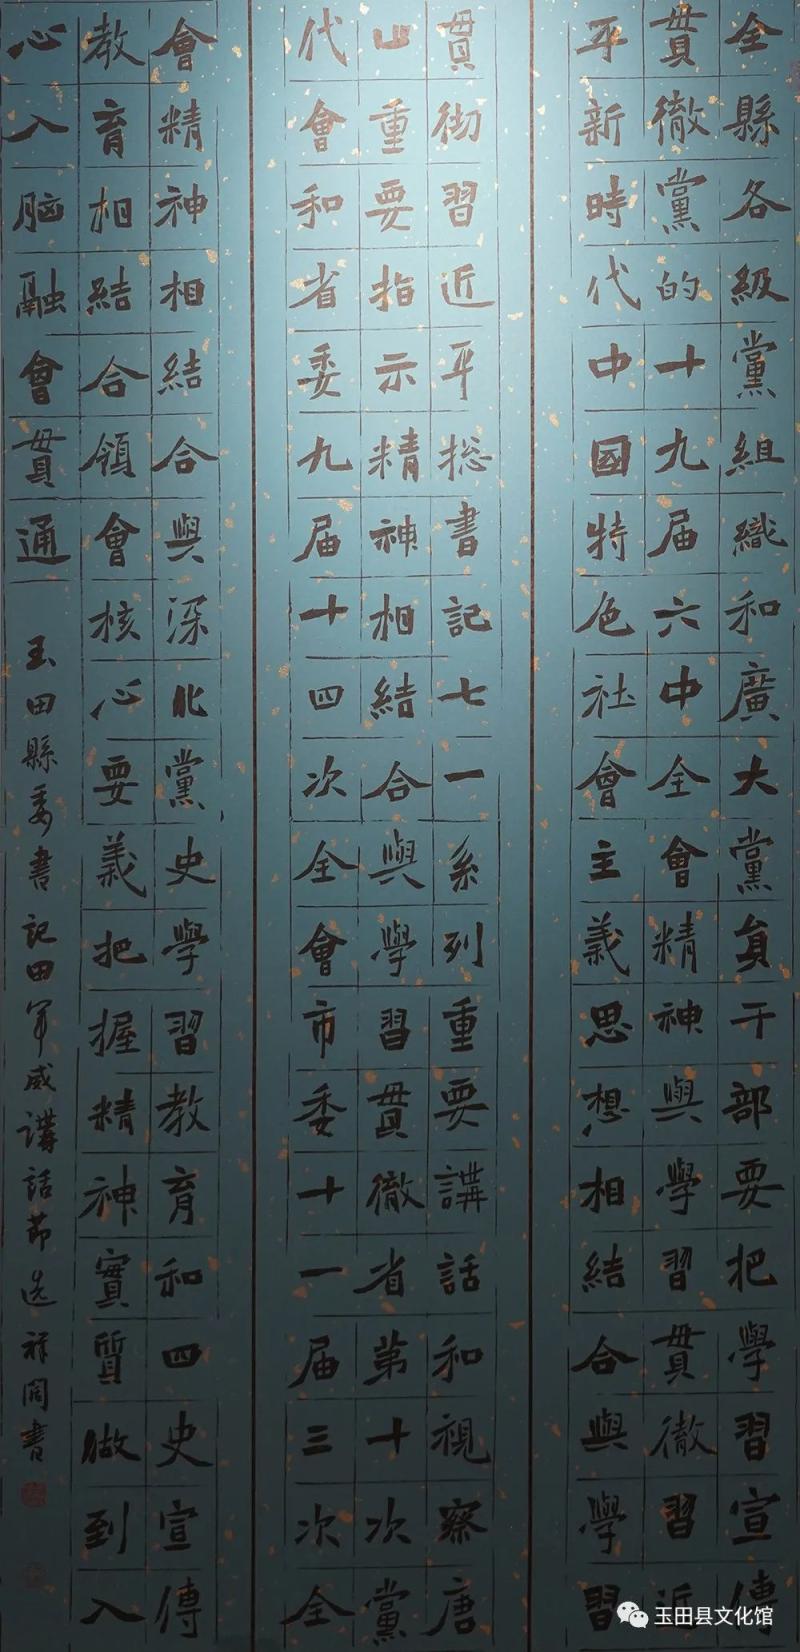 全縣各級黨組織和廣大黨員干部要把學習宣傳
貫徹黨的十九届六中全會精神與學習貫徹習近
平新時代中國特色社會主義思想相結合與學習
貫彻習近平総書記七一系列重要講話和視察唐
山重要指示精神相結合與學習貫徹省第十次黨
代會和省委九届十四次全會市委十一届三次全
會精神相結合與深化黨史學習教育和四史宣傳
教育相結合領會核心要義把握精神實質做到入
心入脑融會貫通
玉田縣委書記田军威講話节选 祥書
玉田县文化馆